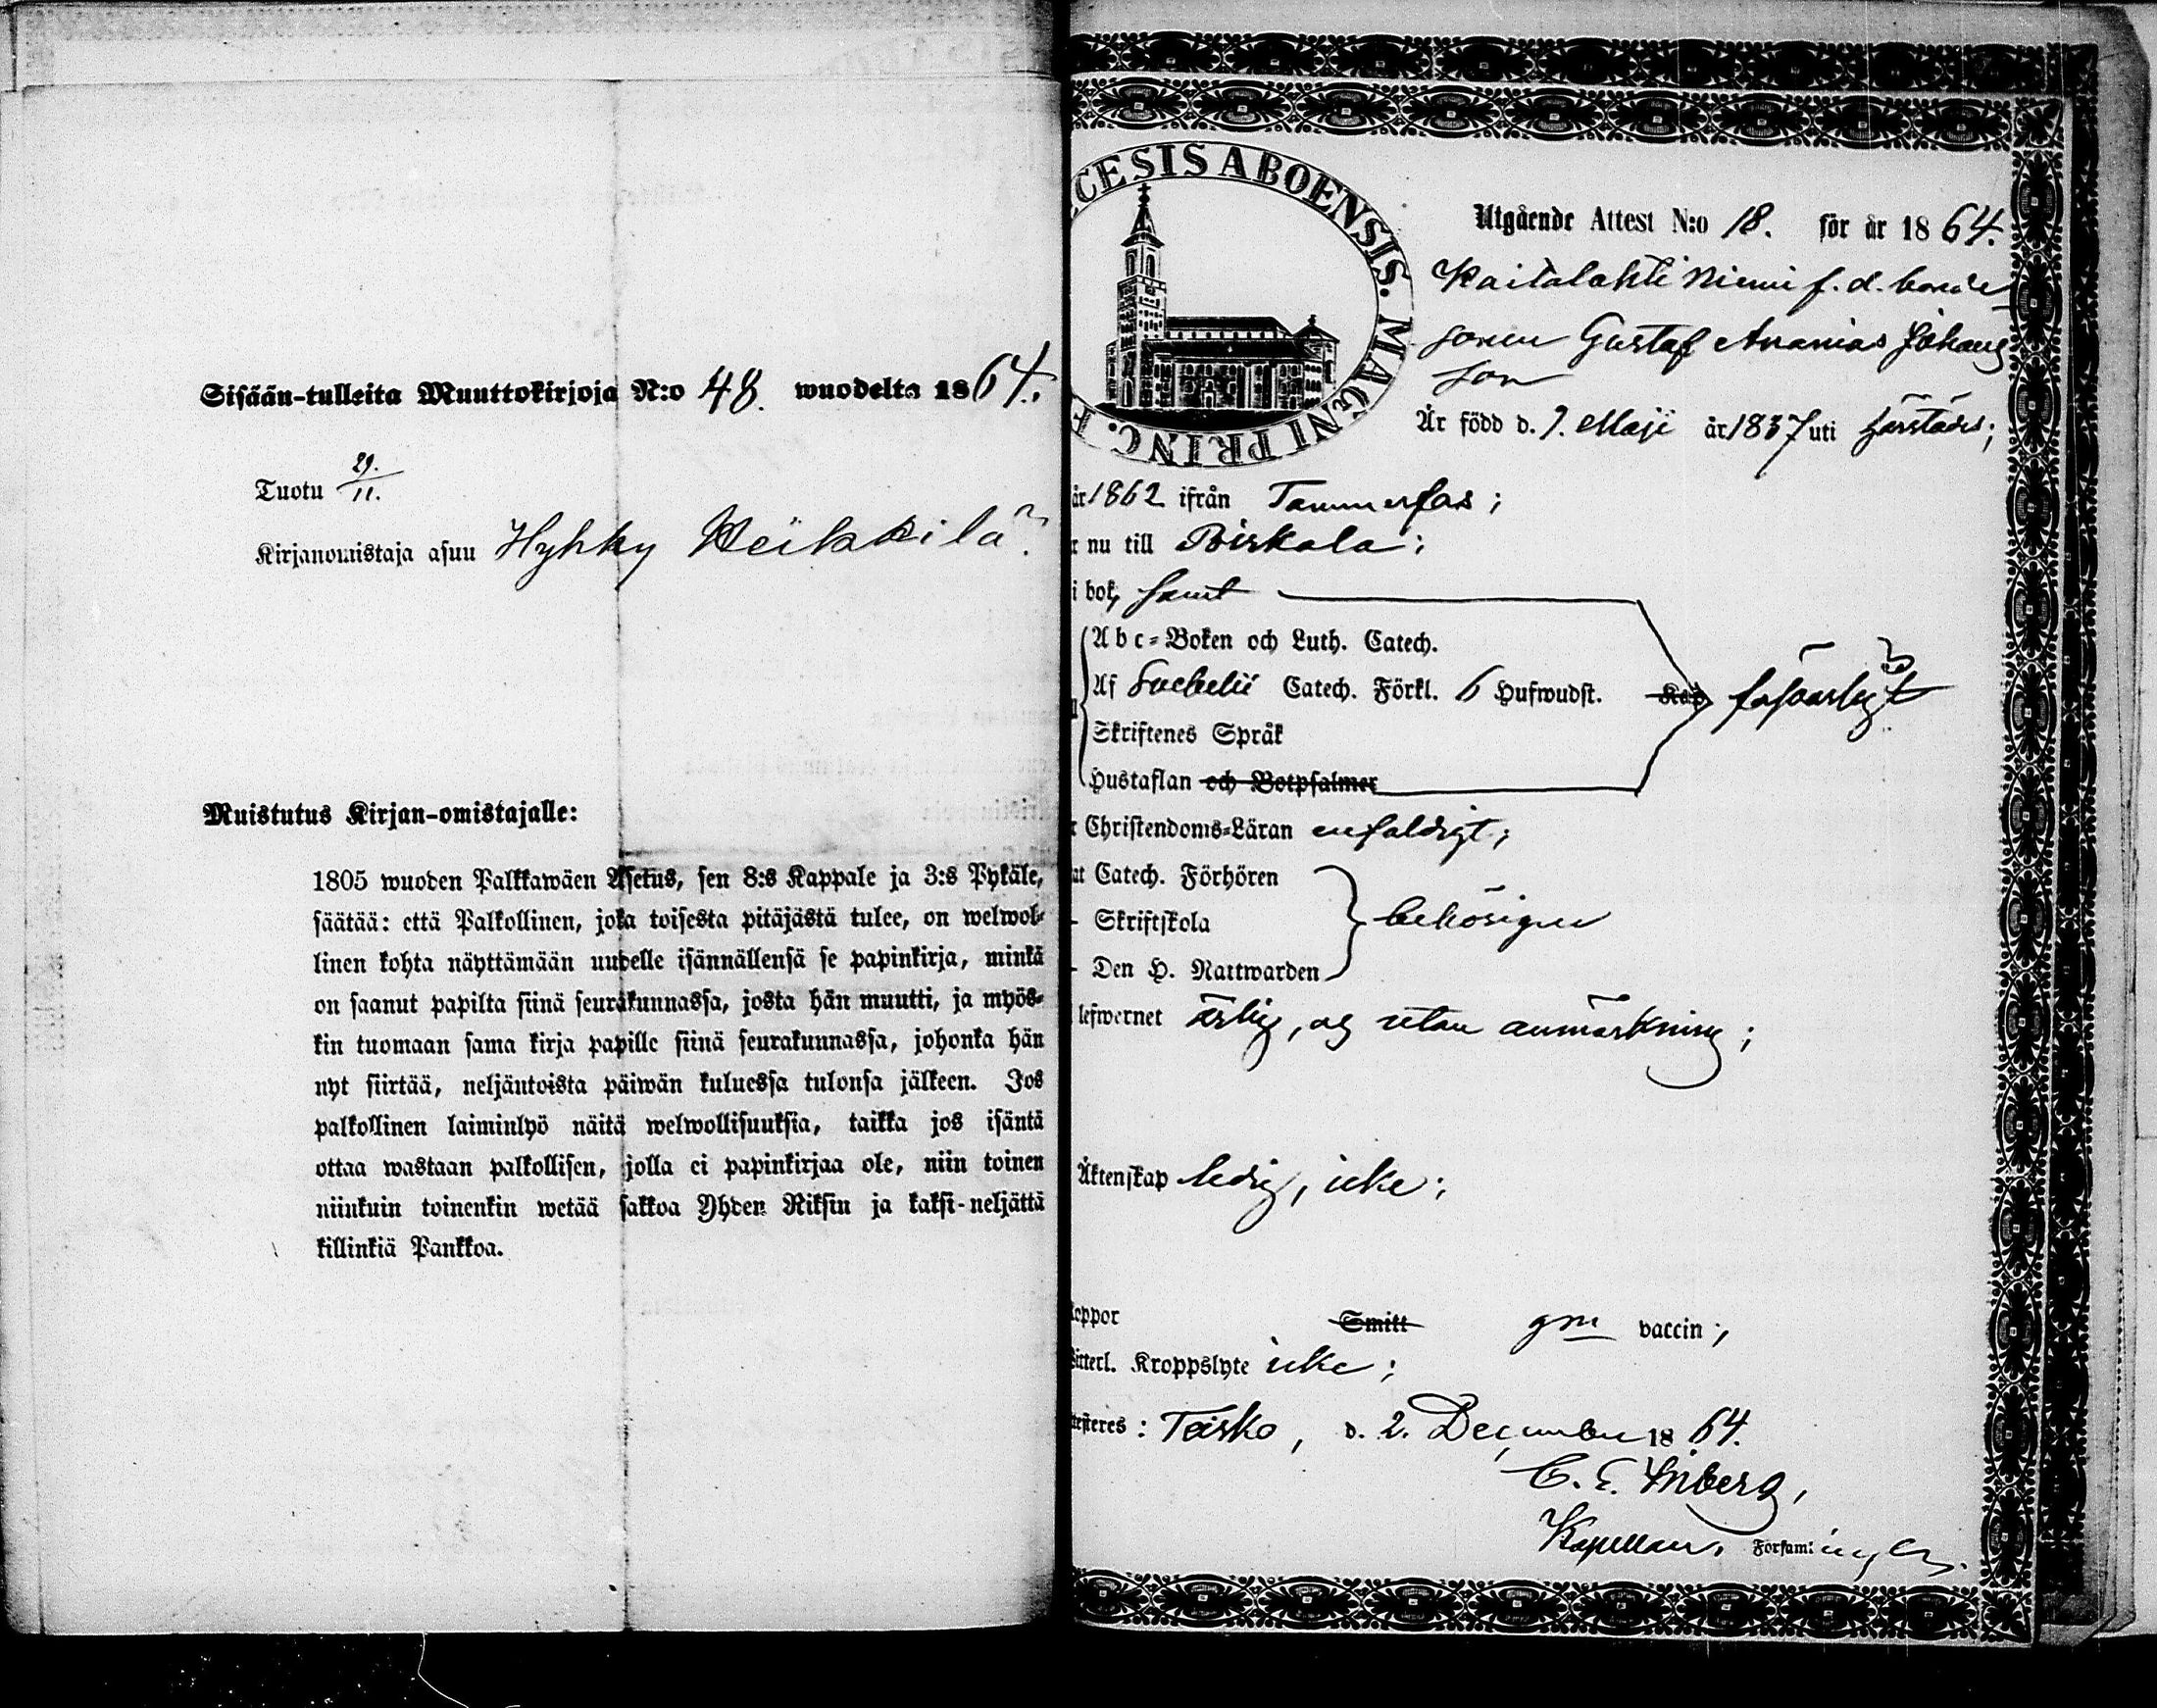 Sisään-tulleita Muuttokirjoja N:o 48. wuodelta 1864.
Tuotu 29./11.
Kirjanomistaja asuu Hyhky Heikkilä.
Muistutus Kirjan-omistajalle:
1805 wuoden Palkkawäen Asetus, sen 8:s Kappale ja 3:s Pykäle,
säätää: että Palkollinen, joka toisesta pitäjästä tulee, on welwol-
linen kohta näyttämään uudelle isännällensä se papinkirja, minkä
on saanut papilta siinä seurakunnassa, josta hän muutti, ja myös-
kin tuomaan sama kirja papille siinä seurakunnassa, johonka hän
nyt siirtää, neljäntoista päiwän kuluessa tulonsa jälkeen. Jos
palkollinen laiminlyö näitä welwollisuuksia, taikka jos isäntä
ottaa wastaan palkollisen, jolla ei papinkirjaa ole, niin toinen
niinkuin toinenkin wetää sakkoa Yhden Riksin ja kaksi-neljättä
killinkiä Pankkoa.
CESIS ABOENSIS. MAGNI PRINC. F
Utgående Attest N:o 18. för år 1864.
Kaitalahti Niemi f. d. bonde
sonen Gustaf Ananias Johans
son
Är född d. 7. Maji år 1837 uti härstädes;
år 1862 ifrån Tammerfors;
r nu till Birkala;
i bok, samt
Abc-Boken och Luth. Catech.
Af Svebelii Catech. Förkl. 6 Hufwudst. Kap försvarligt
Skriftenes Språk
Hustaflan och Botpsalmer
r Christendoms-Läran enfaldigt;
at Catech. Förhören
- Skriftskola behörigen
- Den H. Nattwarden
lefwernet ärlig, og utan anmärkning;
Äktenskap ledig, icke;
koppor Smitt gm vaccin;
Witterl. Kroppslyte icke;
ttesteres: Teisko, d. 2. December 1864.
C. E. Inberg,
Kapellan. Församl